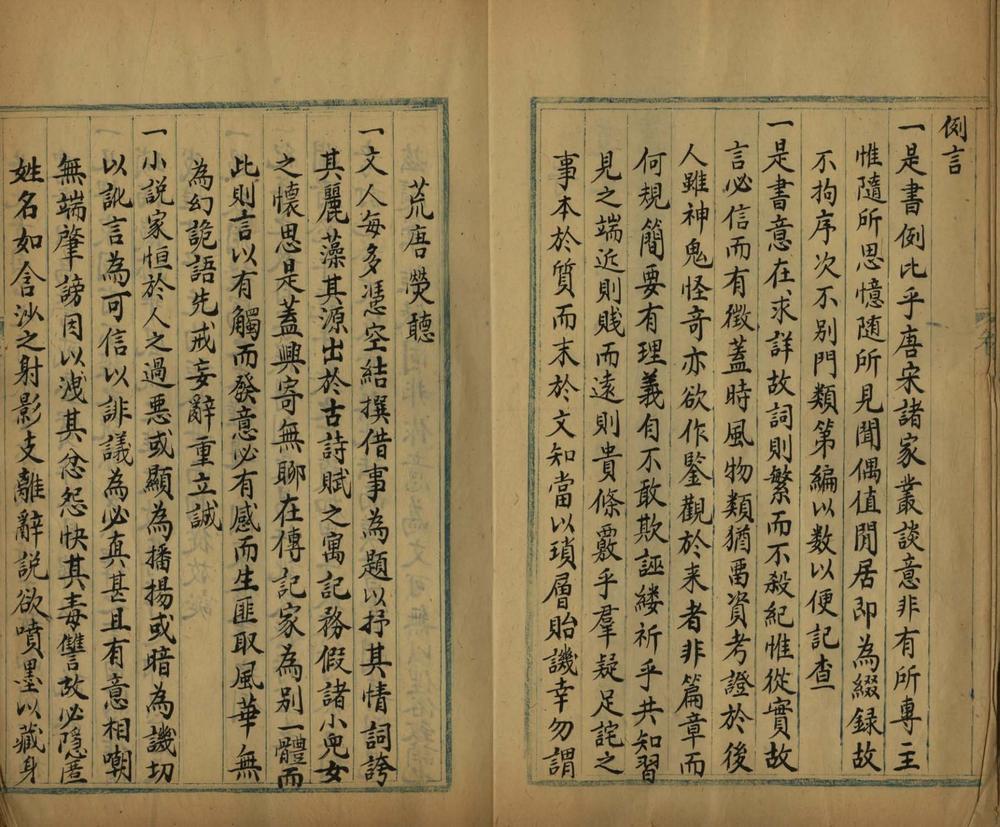 例言
一是書例比乎唐宋諸家叢談意非有所專主
惟隨所思憶随所見聞偶值閒居即為綴録故
不拘序次不別門類第編以数以便記查
一是書意在求詳故詞則繁而不殺紀惟從實故
言必信而有徵蓋時風物類猶畱資考證於後
人雖神鬼怪奇亦欲作鑒觀於来者非篇章而
何規簡要有理義自不敢欺誣縷祈乎共知習
見之端近則賤而遠則貴條覈乎羣疑足詫之
事本於質而末於文知當以瑣屑貽譏幸勿謂
荒唐熒聽
一文人每多憑空結撰借事為題以抒其情詞誇
其麗藻其源出於古詩賦之寓記務假諸小兒女
之懷思是蓋興寄無聊在傳記家為別一體而
此則言以有觸而發意必有感而生匪取風華無
為幻詭語先戒妄辭重立誠
一小説家恒於人之過悪或顯為播揚或暗為譏切
以訛言為可信以誹議為必真甚且有意相嘲
無端肇謗因以洩其忿怨快其毒讐故必隱匿
姓名如含沙之射影支離辭説欲噴墨以藏身